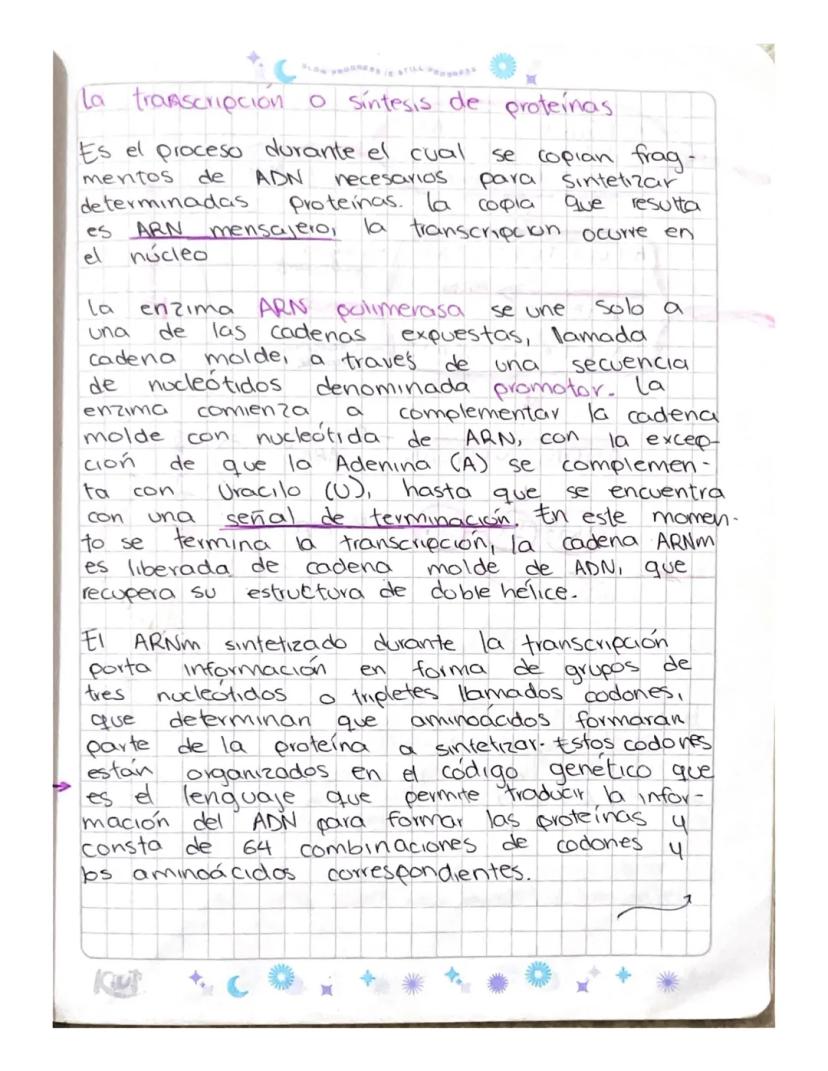 SLOW PROGRESS IS STILL PROGRESS
La transcripción o síntesis de proteínas
Es el proceso durante el cual se copian frag-
mentos de ADN necesarios para sintetizar
determinadas proteínas. La copia que resulta
es ARN mensajero, la transcripcion ocurre en
el núcleo
La enzima ARN polimerasa se une solo a
una de las cadenas expuestas, llamada
cadena molde, a través de una secuencia
de nucleótidos denominada promotor. La
enzima comienza a complementar la cadena
molde con nucleótida de ARN, con la excep-
ción de que la Adenina (A) se complemen-
ta con Uracilo (U), hasta que se encuentra
con una señal de terminación. En este momen-
to se termina la transcripción, la cadena ARNm
es liberada de cadena molde de ADN, que
recupera su estructura de doble hélice.
El ARNm sintetizado durante la transcripción
porta información en forma de grupos de
tres nucleótidos o tripletes llamados codones,
que determinan que aminoácidos formaran
parte de la proteína a sintetizar. Estos codones
están organizados en el código genético que
es el lenguaje que permite traducir la infor-
mación del ADN para formar las proteínas y
consta de 64 combinaciones de codones y
los aminoácidos correspondientes.
Kiut